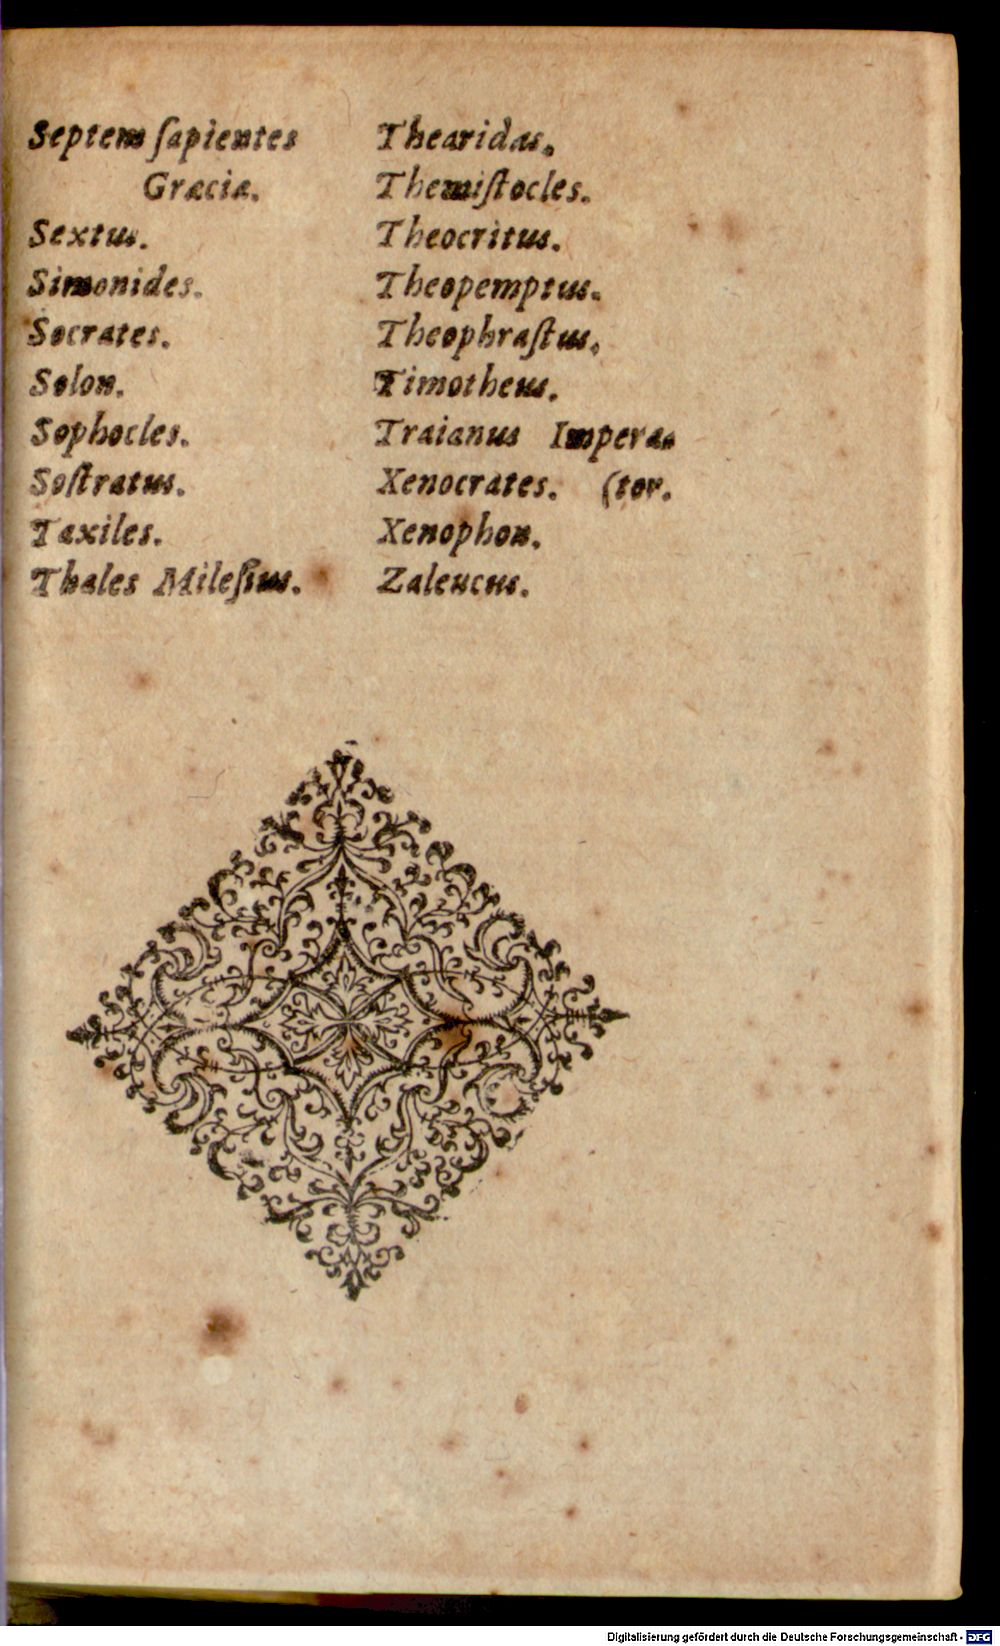 Septem ſapientes
Græciæ.
Sextus.
Simonides.
Socrates.
Solon.
Sophocles.
Soſtratus.
Taxiles.
Thales Mileſius.
Thearidas.
Themiſtocles.
Theocritus.
Theopemptus.
Theophraſtus.
Timotheus.
Traianus Impera-
Xenocrates. (tor.
Xenophon.
Zaleucus.
Digitalisierung gefördert durch die Deutsche Forschungsgemeinschaft - DFG